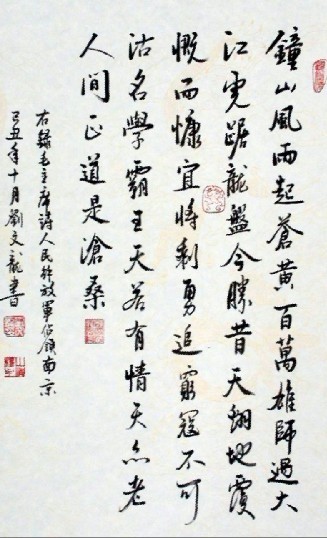 鐘山風雨起蒼黃百萬雄師過大
江虎踞龍盤今勝昔天翻地覆
慨而慷宜將剩勇追窮寇不可
沽名學霸王天若有情天亦老
人間正道是滄桑
右錄毛主席詩人民解放軍佔領南京
己丑年十月劉文龍書